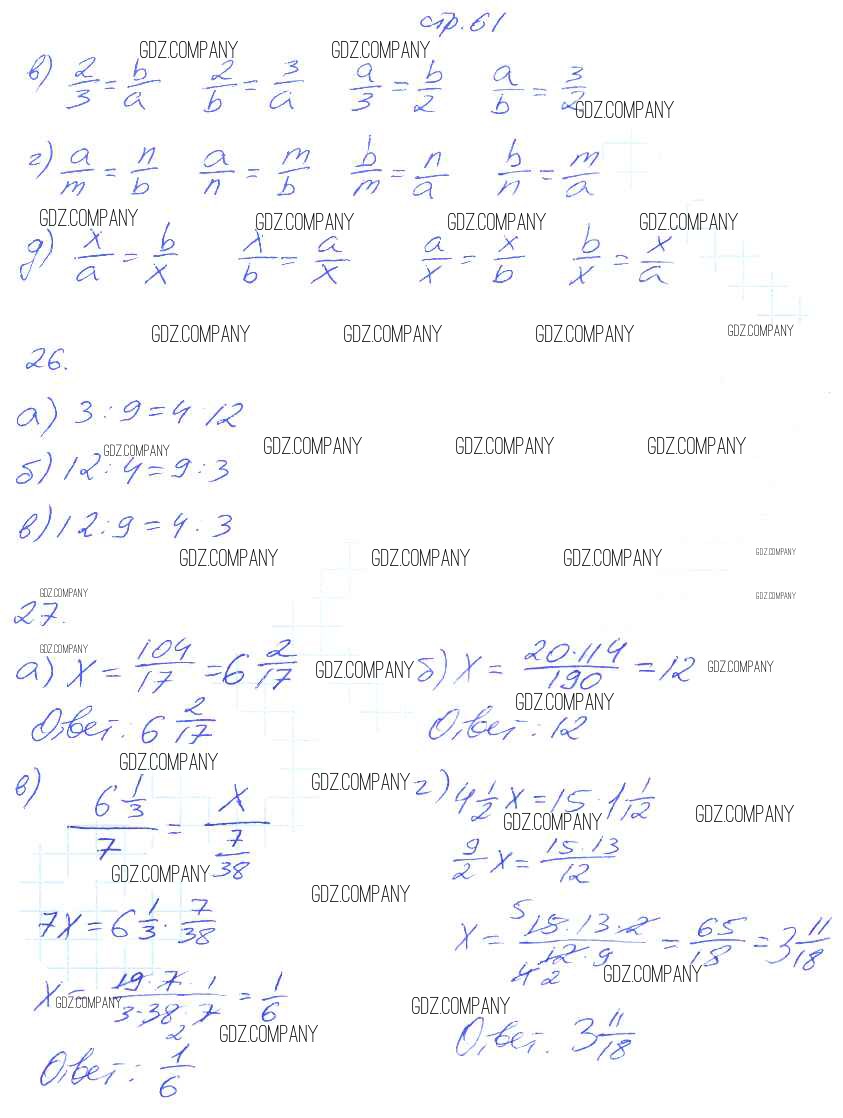 стр. 61
GDZ.COMPANY GDZ.COMPANY
в) 2/3 = b/a 2/b = 3/a a/3 = b/2 a/b = 3/2
GDZ.COMPANY
г) a/m = n/b a/n = m/b b/m = n/a b/n = m/a
GDZ.COMPANY GDZ.COMPANY GDZ.COMPANY GDZ.COMPANY
д) x/a = b/x x/b = a/x a/x = x/b b/x = x/a
GDZ.COMPANY GDZ.COMPANY GDZ.COMPANY GDZ.COMPANY
26.
а) 3 : 9 = 4 : 12
GDZ.COMPANY GDZ.COMPANY GDZ.COMPANY GDZ.COMPANY
б) 12 : 4 = 9 : 3
в) 12 : 9 = 4 : 3
GDZ.COMPANY GDZ.COMPANY GDZ.COMPANY GDZ.COMPANY
GDZ.COMPANY GDZ.COMPANY
27.
GDZ.COMPANY
а) x = 104/17 = 6 2/17 GDZ.COMPANY б) x = 20·114/190 = 12 GDZ.COMPANY
GDZ.COMPANY
Ответ: 6 2/17 Ответ: 12
GDZ.COMPANY
в) 6 1/3 / 7 = x / 7/38 GDZ.COMPANY г) 4 1/2 x = 15 · 1 1/12
GDZ.COMPANY GDZ.COMPANY
9/2 x = 15·13/12
GDZ.COMPANY GDZ.COMPANY
7x = 6 1/3 · 7/38 x = 15·13·2/12·9 = 65/18 = 3 11/18
5
4 2
GDZ.COMPANY
x = 19·7·1/3·38·7 = 1/6
2
GDZ.COMPANY GDZ.COMPANY GDZ.COMPANY
Ответ: 1/6 Ответ. 3 11/18